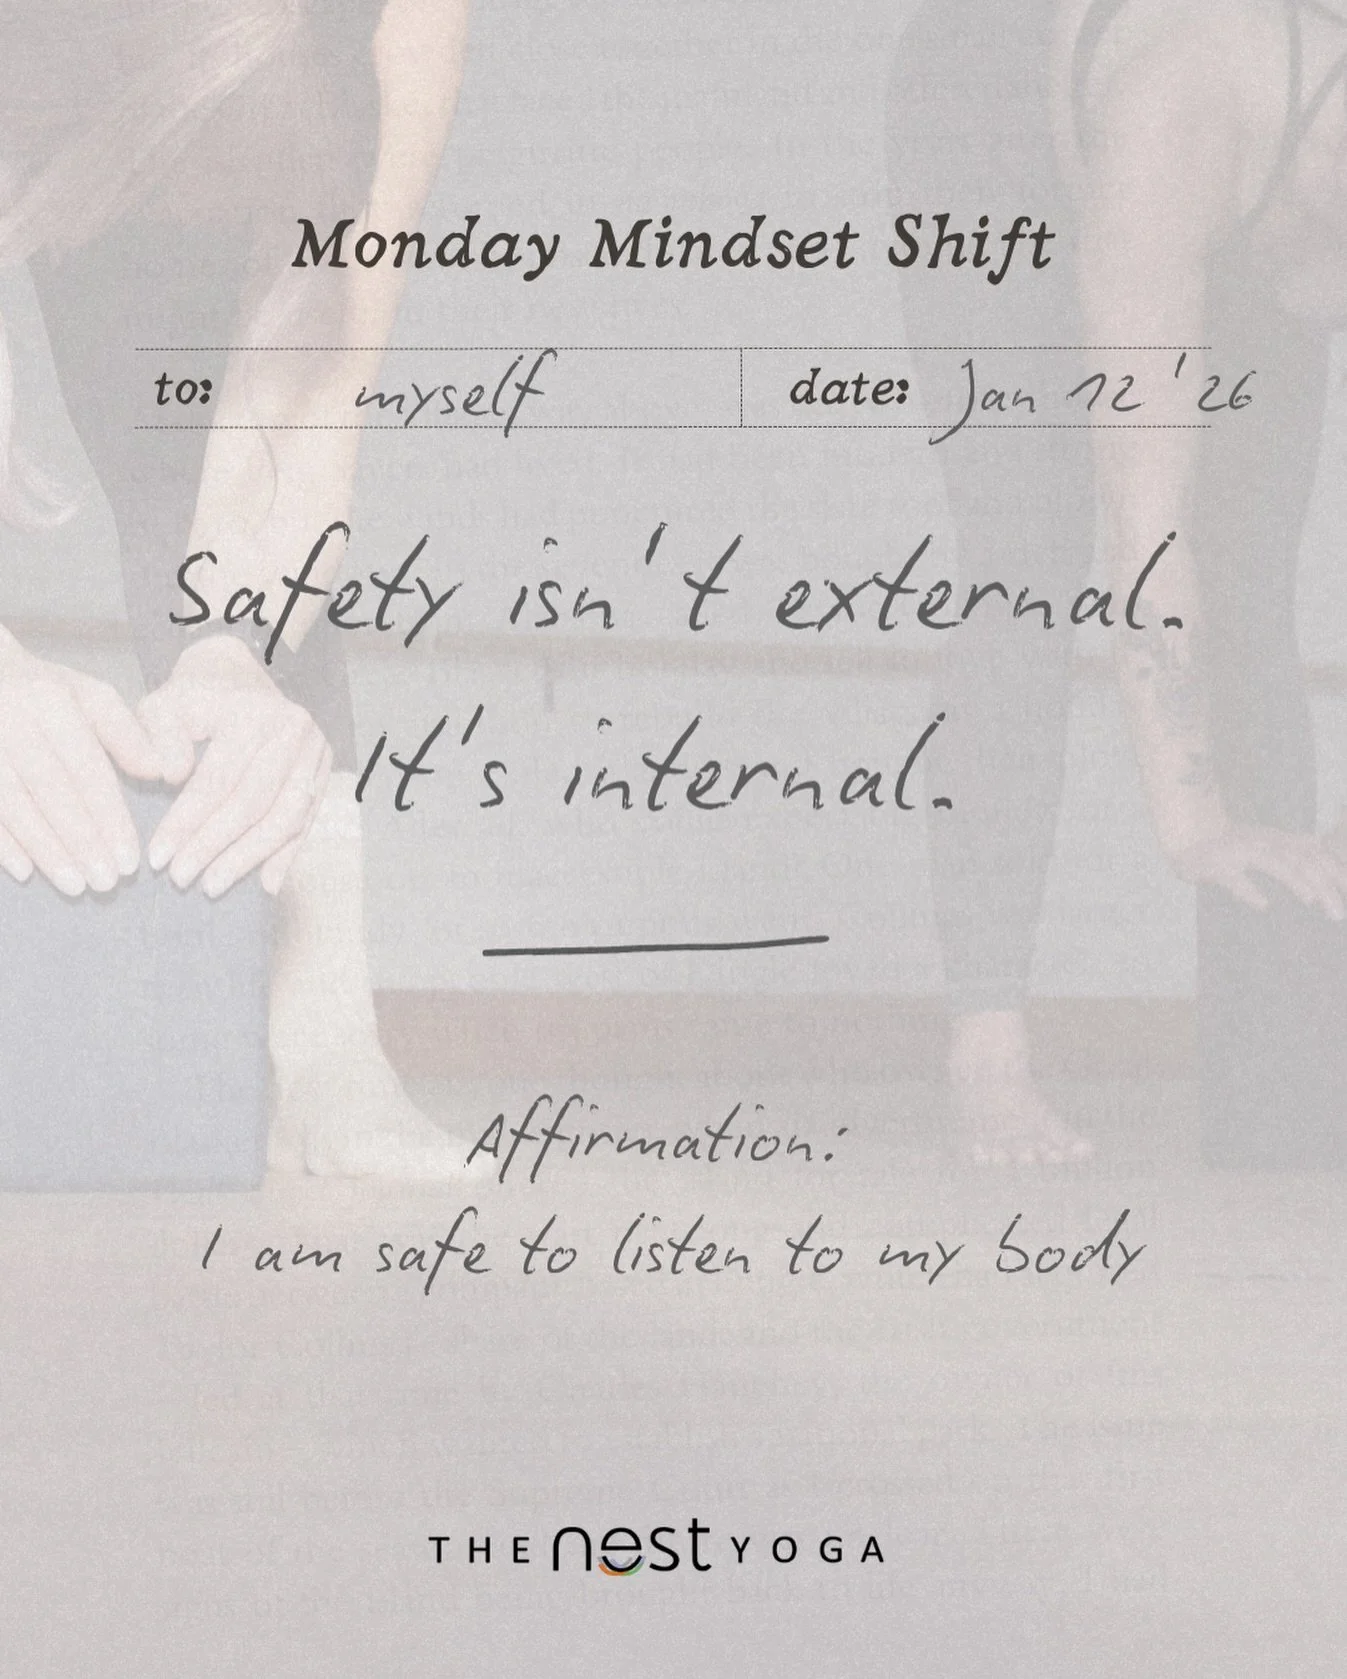 Monday Mindset Shift
to: myself date: Jan 12 '26
Safety isn't external.
It's internal.
Affirmation:
I am safe to listen to my body
THE nest YOGA